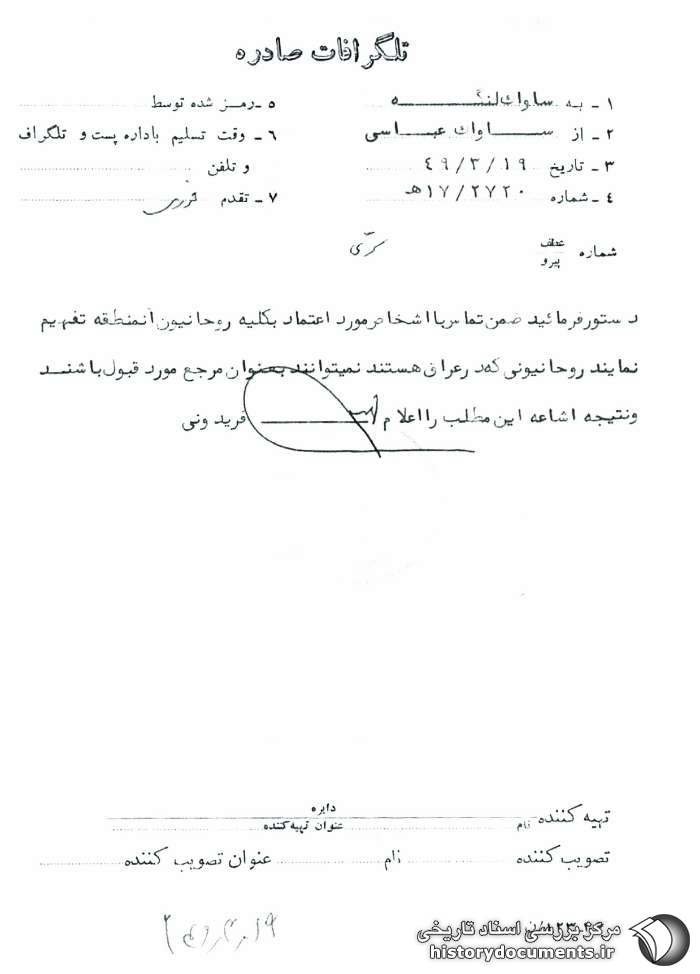 تلگرافات صادره
۱ - به ساواك لنگه
۵ - رمز شده توسط
۲ - از ساواك عباسی
۶ - وقت تسلیم باداره پست و تلگراف
۳ - تاریخ ۴۹/۳/۱۹
و تلفن
۴ - شماره ۱۷/۲۷۲۰هـ
۷ - تقدم فوری
شماره عطف پیرو
سری
دستور فرمائید ضمن تماس با اشخاص مورد اعتماد بکلیه روحانیون آنمنطقه تفهیم
نمایند روحانیونی که در عراق هستند نمیتوانند بعنوان مرجع مورد قبول باشند
ونتیجه اشاعه این مطلب را اعلام فریدونی
تهیه کننده نام دایره عنوان تهیه کننده
تصویب کننده نام عنوان تصویب کننده
مرکز بررسی اسناد تاریخی
historydocuments.ir